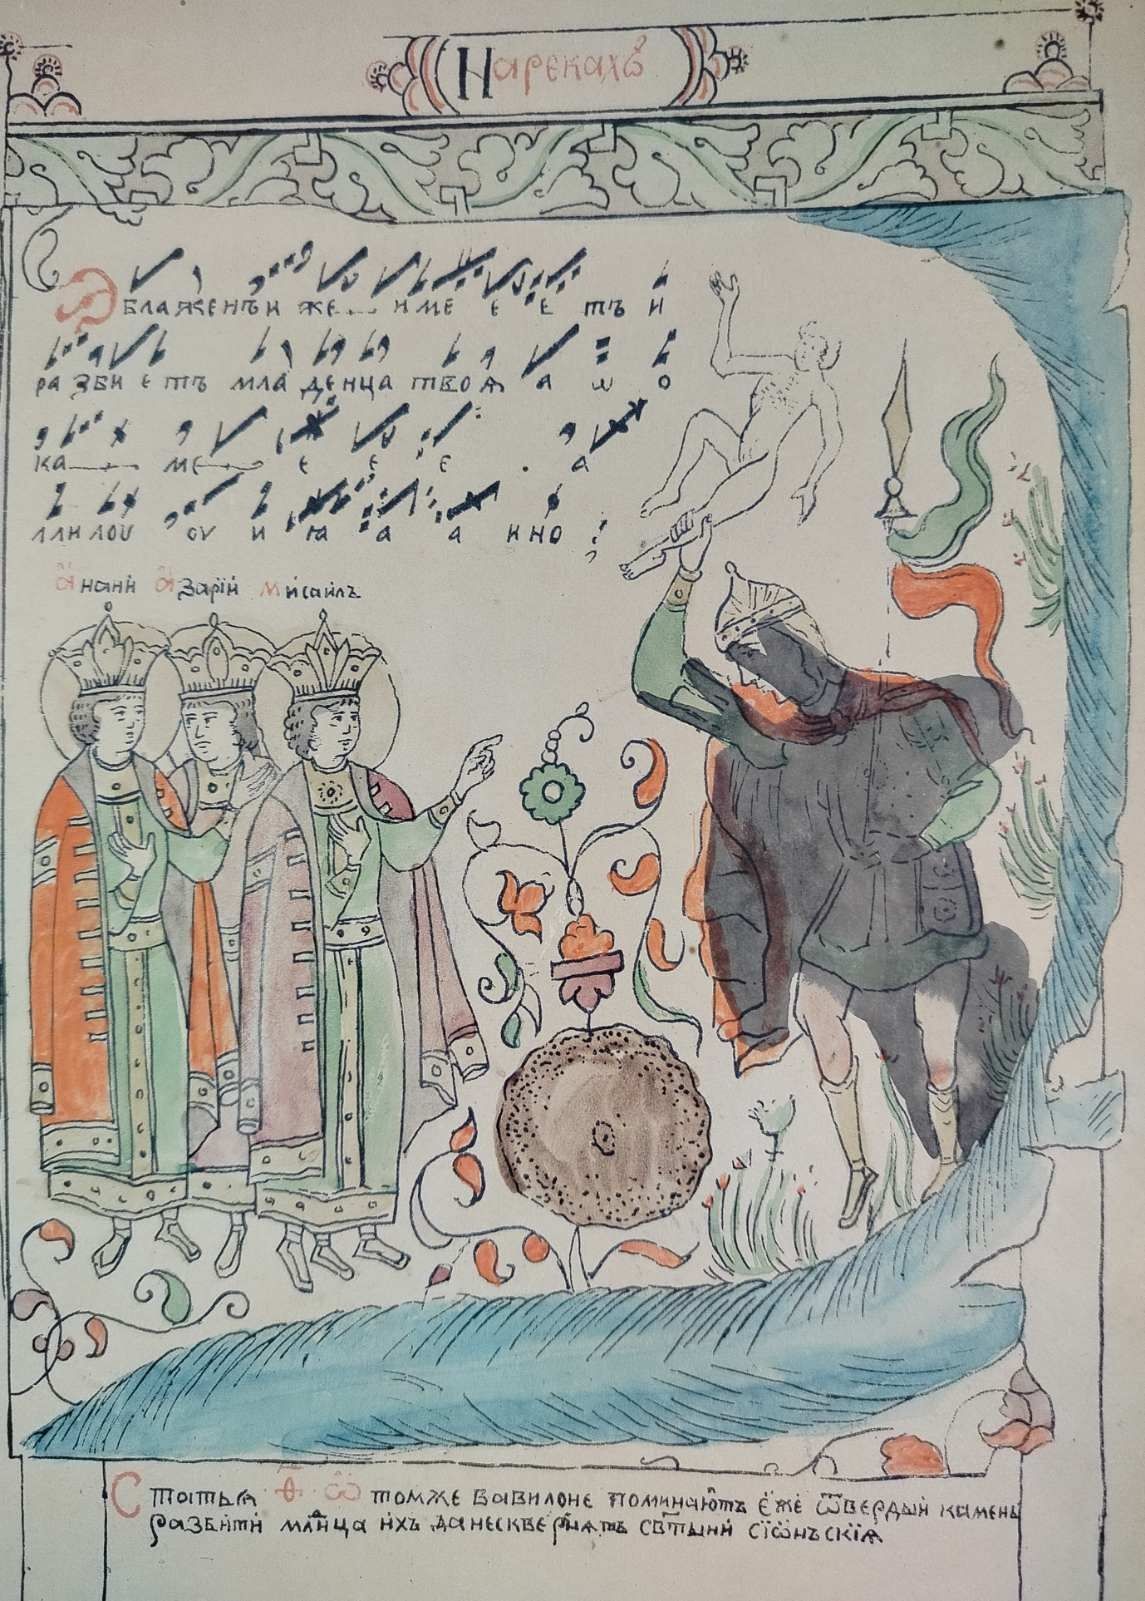 На рекахъ
Блаженъи же име е е тъ и
ра зби е тъ мла денца твоѧ а ѡ о
ка ме е е е . а
ллилоу оу и ꙗ а а ино :
А҆нані А҆зарій мисаилъ
Статьѧ ѳ҃ ѿ томже вавилоне поминаютъ е҆же ѿвердый камень
разбити мл҃нца ихъ да нескверѧтъ ст҃ыни сїѡнъскїѧ